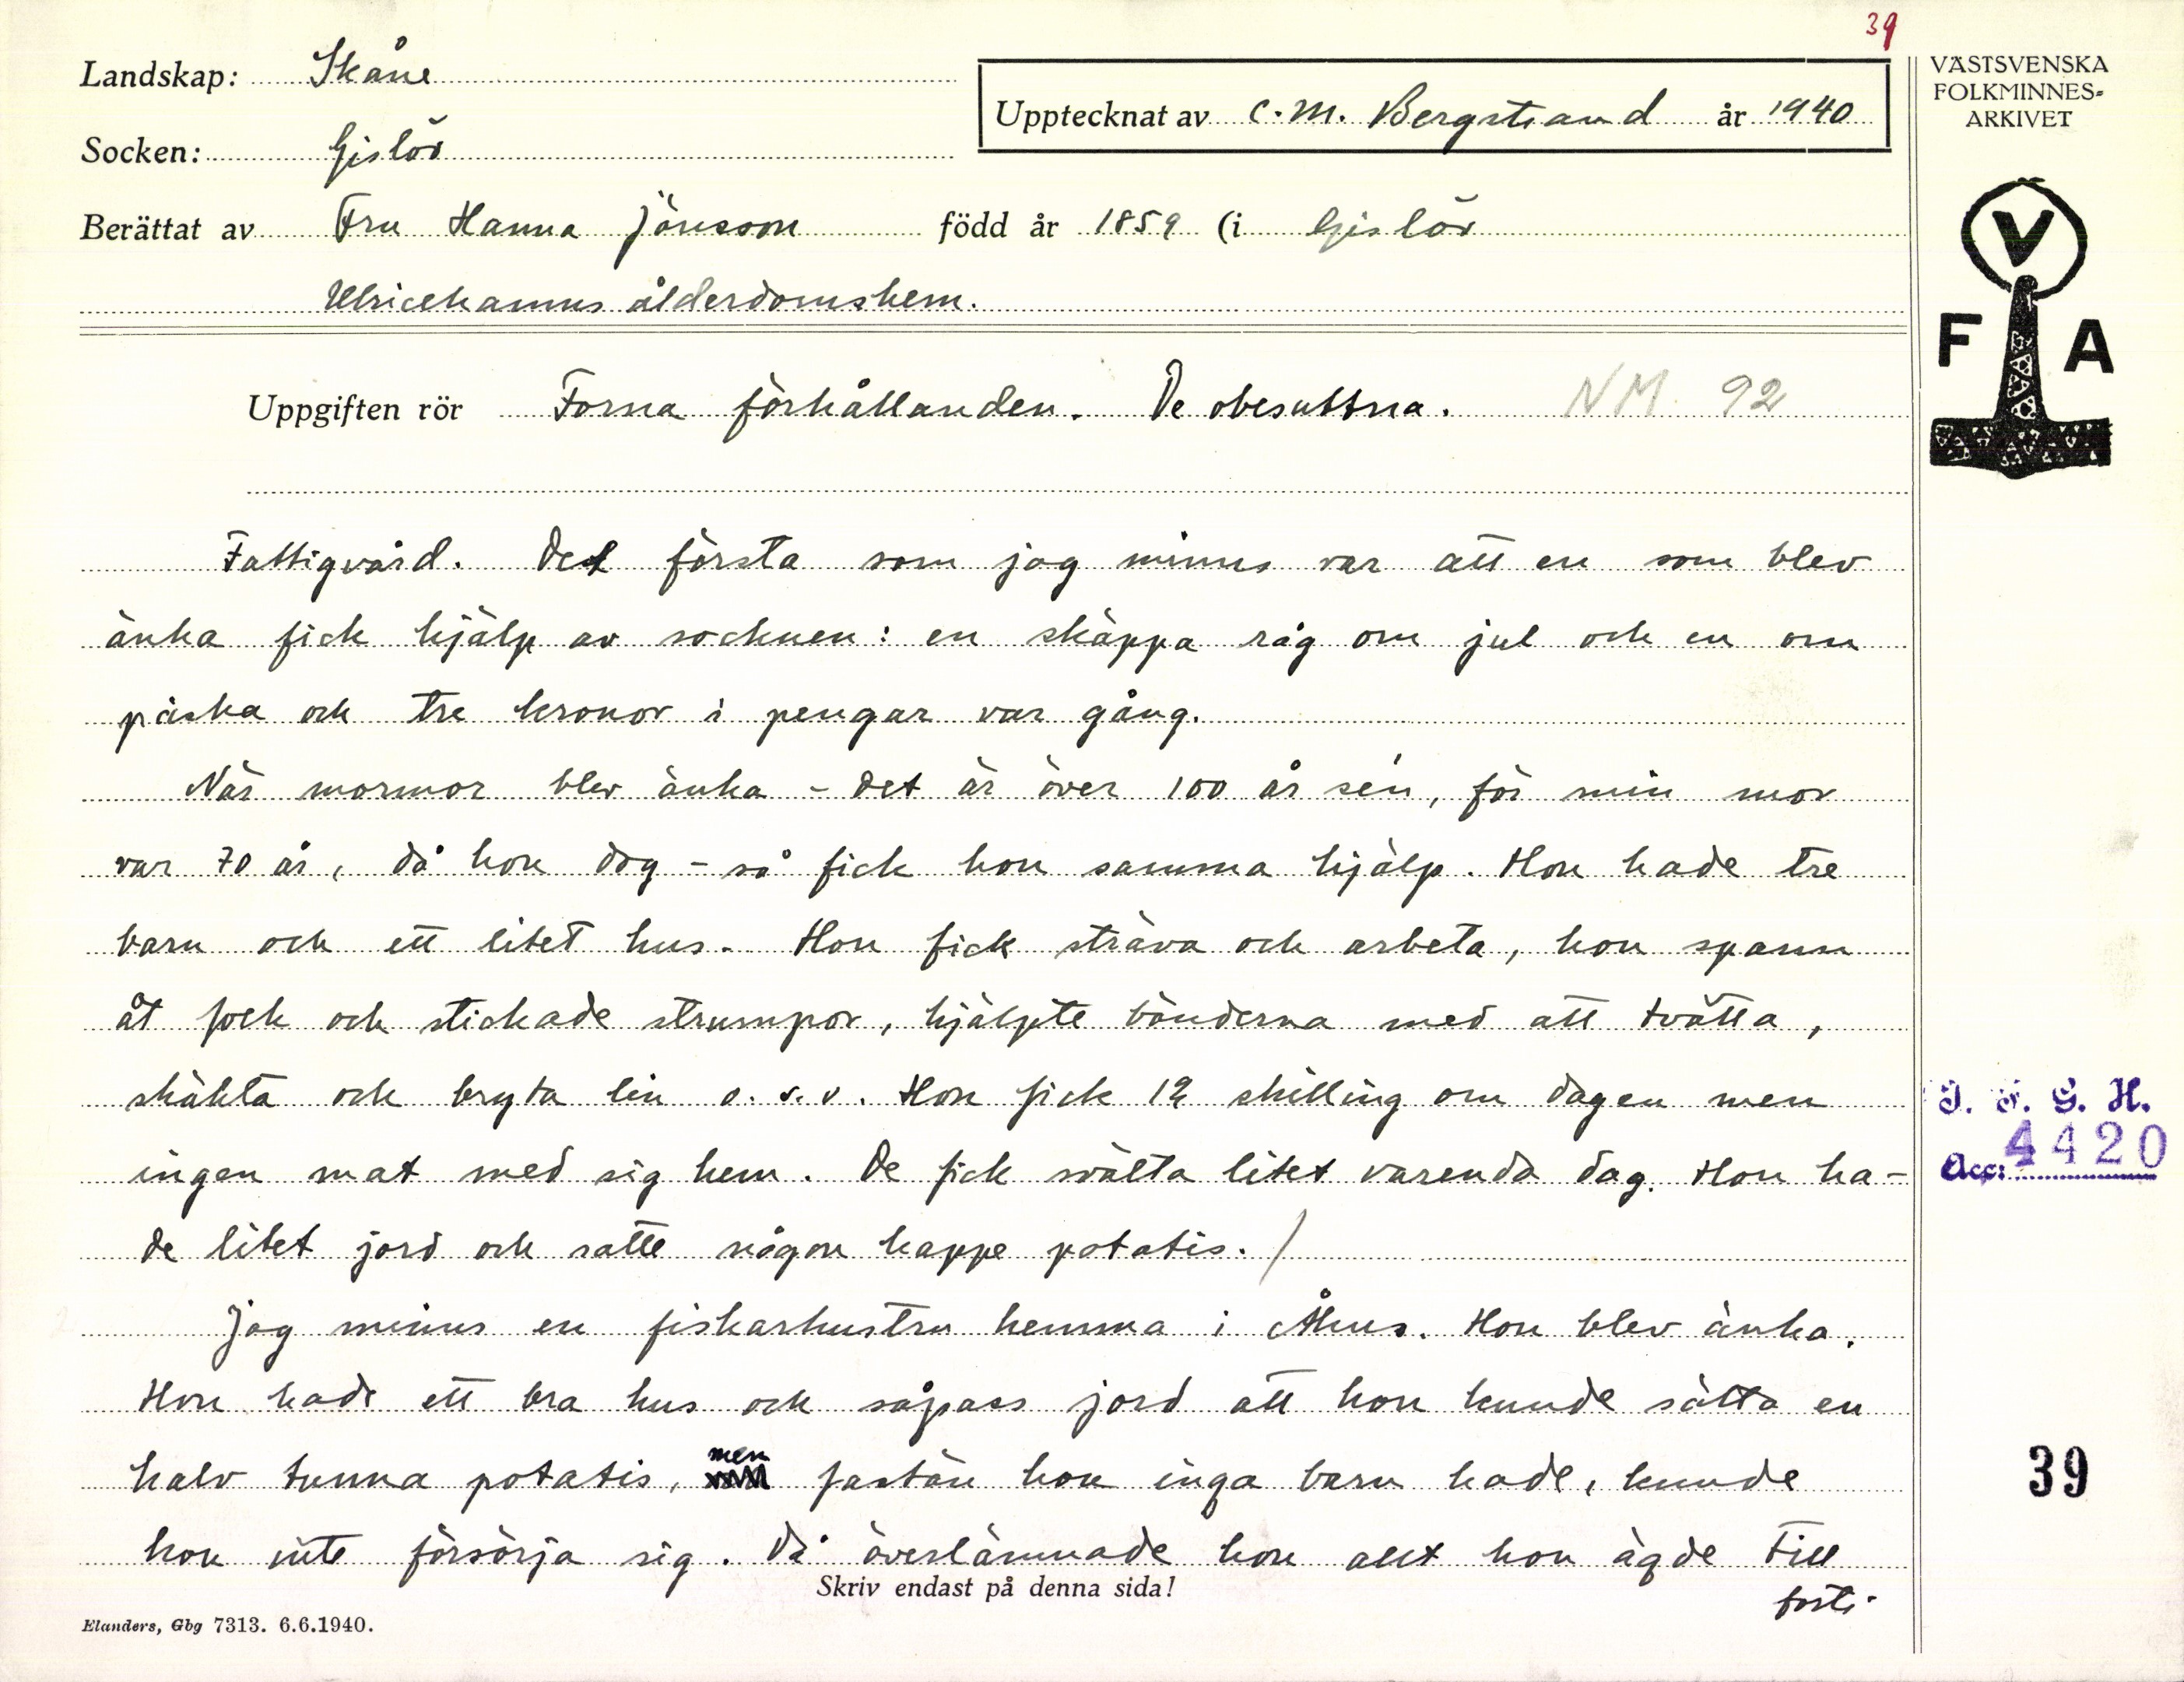 39
Landskap: Skåne
Upptecknat av C. M. Bergstrand år 1940
Socken: Gislöv
Berättat av Fru Hanna Jönsson född år 1859 (i Gislöv
Ulricehamns ålderdomshem.
VÄSTSVENSKA
FOLKMINNES=
ARKIVET
V
F A
Uppgiften rör Forna förhållanden. De obesuttna. NM. 92
Fattigvård. Det första som jag minns var att en som blev
änka fick hjälp av socknen: en skäppa råg om jul och en om
påska och tre kronor i pengar var gång.
När mormor blev änka - det är över 100 år sén, för min mor
var 70 år, då hon dog - så fick hon samma hjälp. Hon hade tre
barn och ett litet hus. Hon fick sträva och arbeta, hon spann
åt folk och stickade strumpor, hjälpte bönderna med att tvätta,
skäkta och bryta lin o.s.v. Hon fick 12 skilling om dagen men
ingen mat med sig hem. De fick svälta litet varenda dag. Hon ha-
de litet jord och satte någon kappe potatis. /
Jag minns en fiskarhustru hemma i Åhus. Hon blev änka.
Hon hade ett bra hus och såpass jord att hon kunde sätta en
halv tunna potatis, men fastän hon inga barn hade, kunde
hon inte försörja sig. Då överlämnade hon allt hon ägde till
Skriv endast på denna sida!
forts.
Elanders, Gbg 7313. 6.6.1940.
I. F. G. H.
Acc: 4420
39